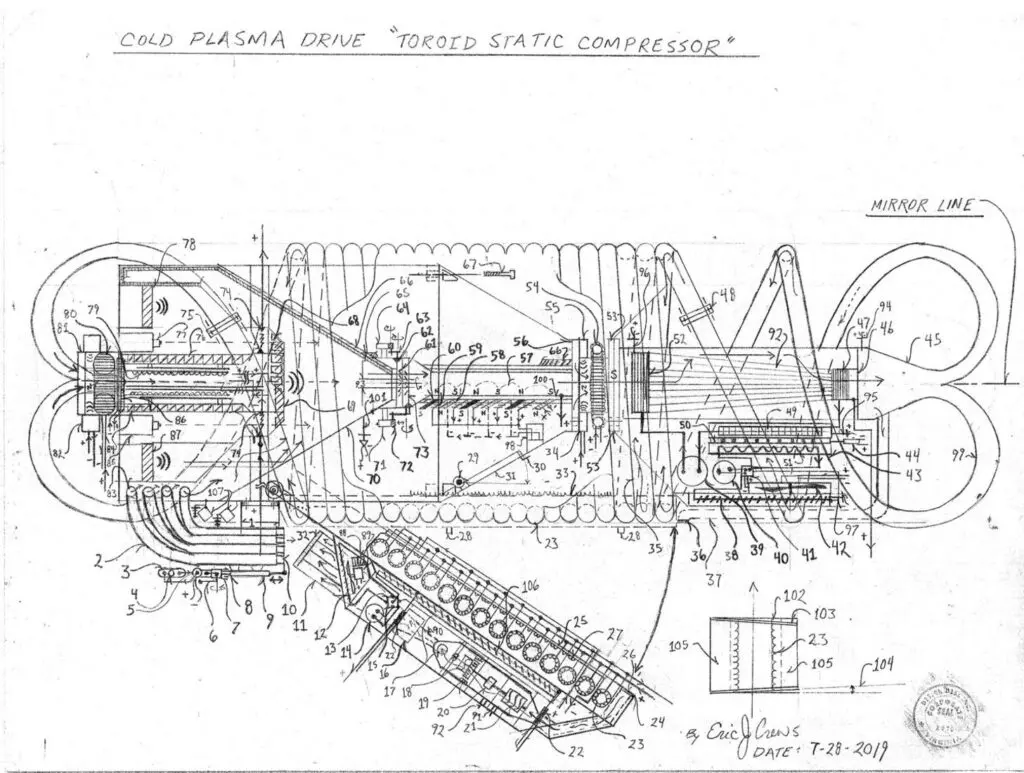 COLD PLASMA DRIVE "TOROID STATIC COMPRESSOR"
MIRROR LINE
78
67
66
65
64
63
62
61
68
96
48
54
55
53
52
92
47
94
46
45
74
75
79
80
81
77
76
56
57
58
59
60
100
69
101
71
70
72
73
86
87
82
84
85
83
98
29
30
31
34
33
53
50
49
95
44
43
51
99
97
107
2
3
4
5
6
7
8
9
10
11
12
13
14
15
16
17
18
19
20
92
21
22
23
24
32
89
90
28
23
28
35
36
37
38
39
40
41
42
106
25
27
26
102
103
23
105
105
104
By Eric J Crews
DATE: 7-28-2019